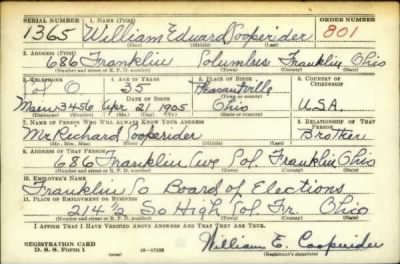 SERIAL NUMBER 1. NAME (Print) ORDER NUMBER
1365 William Edward Cooperider 801
(First) (Middle) (Last)
2. ADDRESS (Print)
686 Franklin Columbus Franklin Ohio
(Number and street or R. F. D. number) (Town) (County) (State)
3. TELEPHONE 4. AGE IN YEARS 5. PLACE OF BIRTH 6. COUNTRY OF CITIZENSHIP
Col O 35 Pleasantville
DATE OF BIRTH
Main 3456 Apr 21 1905 Ohio U.S.A.
(Mo.) (Day) (Yr.)
7. NAME OF PERSON WHO WILL ALWAYS KNOW YOUR ADDRESS 8. RELATIONSHIP OF THAT PERSON
Mr Richard Cooperider Brother
(Mr., Mrs., Miss) (First) (Middle) (Last)
9. ADDRESS OF THAT PERSON
686 Franklin Ave Col. Franklin Ohio
(Number and street or R. F. D. number) (Town) (County) (State)
10. EMPLOYER'S NAME
Franklin Co Board of Elections
11. PLACE OF EMPLOYMENT OR BUSINESS
214 ½ So High Col Fr. Ohio
(Number and street or R. F. D. number) (Town) (County) (State)
I AFFIRM THAT I HAVE VERIFIED ABOVE ANSWERS AND THAT THEY ARE TRUE.
REGISTRATION CARD
D. S. S. Form 1 William E. Cooperider
(Registrant's signature)